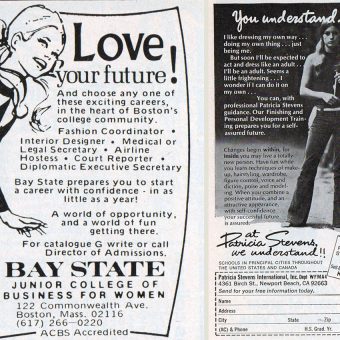 Love
your future!
And choose any one of
these exciting careers,
in the heart of Boston's
college community.
Fashion Coordinator •
Interior Designer • Medical or
Legal Secretary • Airline
Hostess • Court Reporter •
Diplomatic Executive Secretary
Bay State prepares you to start
a career with confidence - in as
little as a year!
A world of opportunity,
and a world of fun
getting there.
For catalogue G write or call
Director of Admissions.
BAY STATE
JUNIOR COLLEGE OF
BUSINESS FOR WOMEN
122 Commonwealth Ave.
Boston, Mass. 02116
(617) 266-0220
ACBS Accredited
You understand.
I like dressing my own way . . .
doing my own thing . . . just
being me.
But soon I'll be expected to
act and dress like an adult . . .
I'll be an adult. Seems a
little frightening . . . I
wonder if I can do it on
my own . . .
You can, with
professional Patricia Stevens
guidance. Our Finishing and
Personal Development Train-
ing prepares you for a self-
assured future.
Changes begin within, for
inside you may live a totally
new person. Have fun while
you learn techniques of make-
up, hairstyling, wardrobe,
figure control, voice and
diction, poise and model-
ing. When you combine a
positive attitude, and an
attractive appearance,
with self-confidence
your successful future
is assured.
at
Patricia Stevens,
we understand!!
SCHOOLS IN PRINCIPAL CITIES THROUGHOUT
THE UNITED STATES AND CANADA
Patricia Stevens International, Inc. Dept
4361 Birch St., Newport Beach, CA 92663
Send for your free information today.
Name
Address
City State Zip
(AC) & Phone H.S. Grad. Yr.